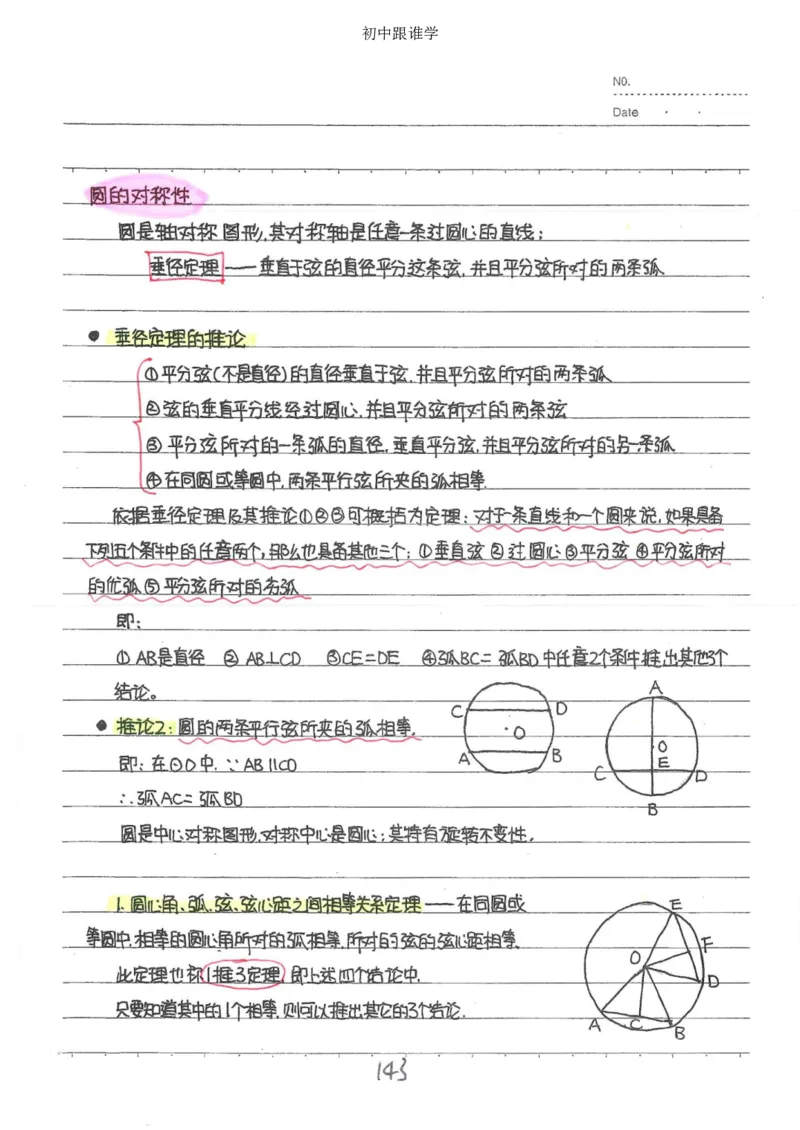 初中跟谁学
NO.
Date
圆的对称性
圆是轴对称图形,其对称轴是任意一条过圆心的直线;
垂径定理——垂直于弦的直径平分这条弦,并且平分弦所对的两条弧
● 垂径定理的推论
①平分弦(不是直径)的直径垂直于弦,并且平分弦所对的两条弧
②弦的垂直平分线经过圆心,并且平分弦所对的两条弦
③ 平分弦所对的一条弧的直径,垂直平分弦,并且平分弦所对的另一条弧
④在同圆或等圆中,两条平行弦所夹的弧相等.
依据垂径定理及其推论①②③可概括为定理:对于一条直线和一个圆来说,如果具备
下列五个条件中的任意两个,那么也具备其他三个:①垂直弦 ②过圆心③平分弦 ④平分弦所对
的优弧⑤平分弦所对的劣弧
即:
① AB是直径 ② AB⊥CD ③CE=DE ④弧BC=弧BD中任意2个条件推出其他3个
结论。
● 推论2:圆的两条平行弦所夹的弧相等.
即:在⊙O中,∵AB∥CD
∴弧AC=弧BD
C D
O
A B
A
O
E
C D
B
圆是中心对称图形,对称中心是圆心;其特有旋转不变性.
1.圆心角、弧、弦、弦心距之间相等关系定理——在同圆或
等圆中,相等的圆心角所对的弧相等,所对的弦的弦心距相等
此定理也称1推3定理,即上述四个结论中,
只要知道其中的1个相等,则可以推出其它的3个结论.
E
F
O
D
A C B
143